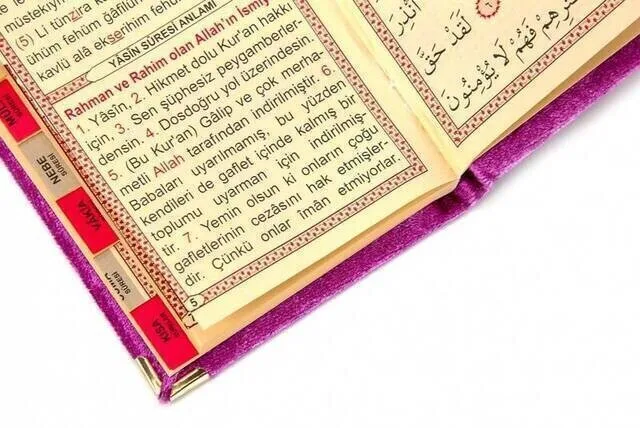 (5) Li tünzira
ühüm fehüm ğâfilûn
kavlü alâ ekserihim fehüm
YÂSİN SÛRESİ ANLAMI
Rahman ve Rahim olan Allah'ın İsmiy
1. Yâsîn, 2. Hikmet dolu Kur'an hakkı
için, 3. Sen şüphesiz peygamberler-
densin. 4. Dosdoğru yol üzerindesin.
5. (Bu Kur'an) Gâlip ve çok merha-
metli Allah tarafından indirilmiştir. 6.
Babaları uyarılmamış, bu yüzden
kendileri de gaflet içinde kalmış bir
toplumu uyarman için indirilmiş-
tir. 7. Yemin olsun ki onların çoğu
gafletlerinin cezâsını hak etmişler-
dir. Çünkü onlar îmân etmiyorlar.
5
NEBE
SÛRESİ
VAKIA
KISA
لَقَدْ حَقَّ
فَهُمْ لَا يُؤْمِنُونَ